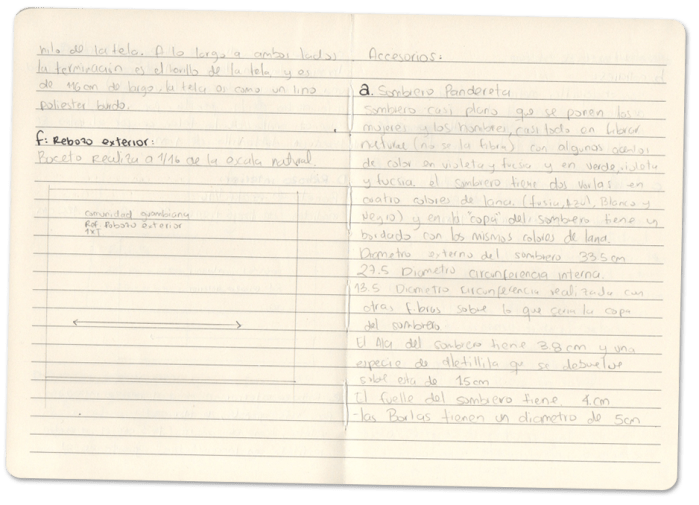 hilo de la tela. A lo largo a ambos lados
la terminación es el orillo de la tela y es
de 116 cm de largo. la tela es como un lino
poliester burdo.
f: Rebozo exterior:
Boceto Realiza a 1/16 de la escala natural.
comunidad guambiana
Ref Rebozo exterior
1x1
Accesorios:
a. Sombrero Pandereta
Sombrero casi plano que se ponen las
mujeres y los hombres, casi todo en fibras
natural (no se la fibra) con algunas
de color en violeta y fucsia y en verde, violeta
y fucsia. el sombrero tiene dos vorlas en
cuatro colores de lana. (fucsia, Azul, Blanco y
Negro) y en la "copa" del sombrero tiene un
bordado con los mismos colores de lana.
Diametro externo del sombrero 33.5 cm
27.5 Diametro circunferencia interna.
13.5 Diametro circunferencia realizada con
otras fibras sobre lo que seria la copa
del sombrero
El Ala del sombrero tiene 3.8 cm y una
especie de aletillita que se debuelve
sobre esta de 15 cm
El fuelle del sombrero tiene 4. cm
-las Borlas tienen un diametro de 5cm